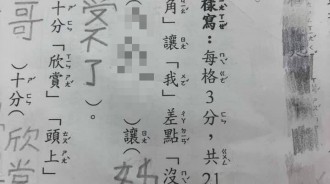 樣寫：每格3分，共21
角」讓「我」差點「沒
讓(
受不了)。
十分「欣賞」「頭上」
哥)十分(欣賞